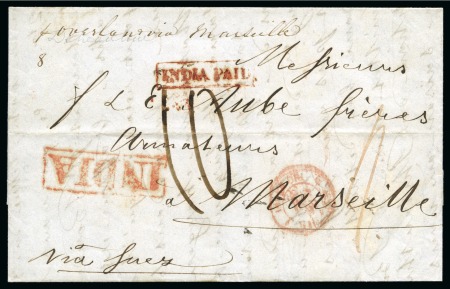 p overland via Marseille
8
Messieurs
INDIA PAID
10
L E. Aube frères
Armateurs
INDIA
à Marseille
via Suez